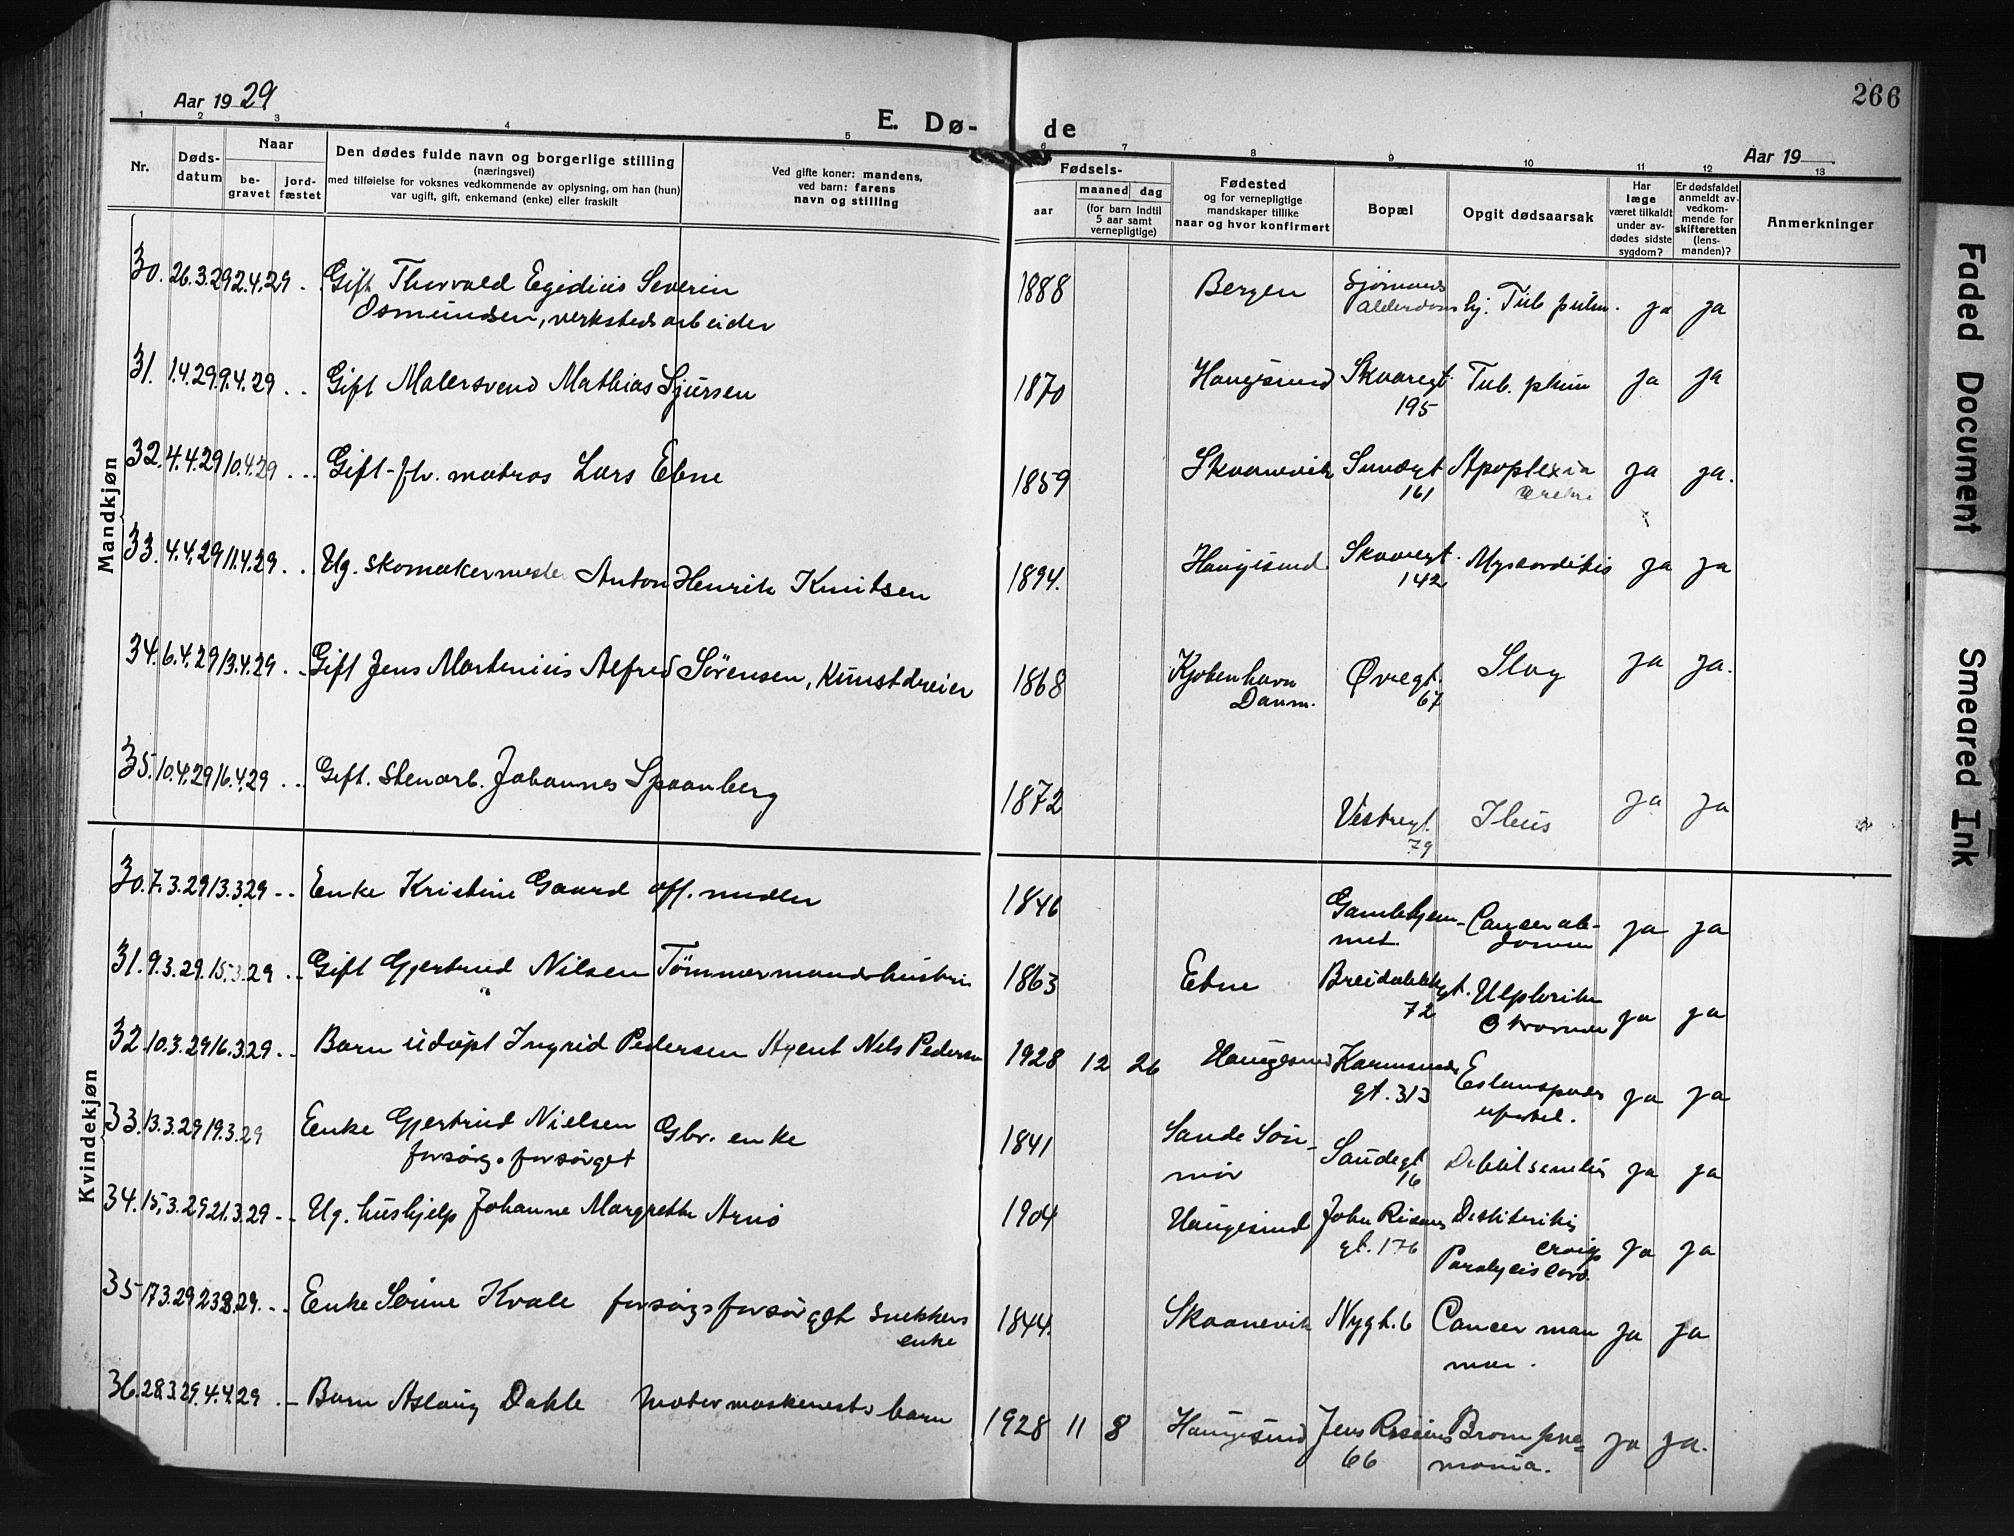 Aar 1929
E. Dø-
de
266
Aar 19
1 2 3 4 5 6 7 8 9 10 11 12 13
Nr.
Døds-
datum
Naar
be-
gravet
jord-
fæstet
Den dødes fulde navn og borgerlige stilling
(næringsvei)
med tilføielse for voksnes vedkommende av oplysning, om han (hun)
var ugift, gift, enkemand (enke) eller fraskilt
Ved gifte koner: mandens,
ved barn: farens
navn og stilling
Fødsels-
aar
maaned dag
(for barn indtil
5 aar samt
vernepligtige)
Fødested
og for vernepligtige
mandskaper tillike
naar og hvor konfirmert
Bopæl
Opgit dødsaarsak
Har
læge
været tilkaldt
under av-
dødes sidste
sygdom?
Er dødsfaldet
anmeldt av
vedkom-
mende for
skifteretten
(lens-
manden)?
Anmerkninger
Mandkjøn
30. 26.3.29 2.4.29 . Gift Thorvald Egidius Severin 1888 Bergen Sjømands Tub pulm. ja ja
Osmundsen, verkstedsarbeider
31. 1.4.29 9.4.29 . . Gift Malersvend Mathias Sjursen 1870 Haugesund Skaaregt. Tub. pulm ja ja
195
32. 4.4.29 10.4.29 . . Gift fhv. matros Lars Ebne 1859 Skaanevik Sundgt Apoplexia ja ja.
161 cerebri
33. 4.4.29 11.4.29 . . Ug. skomakermester Anton Henrik Knutsen 1894. Haugesund Skaaregt. Myocarditis ja ja
142
34. 6.4.29 13.4.29 . . Gift Jens Martenius Alfred Sørensen, Kunstdreier 1868 Kjøbenhavn Øvregt. Slag ja ja.
Danm. 67
35. 10.4.29 16.4.29 . . Gift. Stenarb. Johannes Spaanberg 1872 Vestregt. Ileus ja ja
79
Kvindekjøn
30. 7.3.29 13.3.29 - - Enke Kristine Gaard off. midler 1846 Gamlehjem- Cancer ab- ja ja
met. domen
31. 9.3.29. 15.3.29 . . Gift Gjertrud Nilsen Tømmermandshustru 1863 Ebne Breidablikgt. ja ja
72
32. 10.3.29 16.3.29 . . Barn udøpt Ingrid Pedersen Agent Nils Pedersen 1928 12 26 Haugesund Karmsunds ja ja
gt. 313
33. 13.3.29 19.3.29 Enke Gjertrud Nielsen Gbr. enke 1841 Sande Søn- Sundegt ja ja
forsørg. forsørget mør 16
34. 15.3.29 21.3.29 - - Ug. hushjelp Johanne Margrethe Arnø 1904 Haugesund ja ja
gt. 176
35 17.3.29 23.3.29. - . Enke Serine Kvale forsørgsforsørget snekkers 1844. Skaanevik Nygt. 6 Cancer mam ja ja
enke mae.
36. 28.3.29. 4.4.29 . - Barn Aslaug Dahle Motormaskinists barn 1928 11 8 Haugesund Bronc pne- ja ja.
66 monia.
Faded Document
Smeared Ink